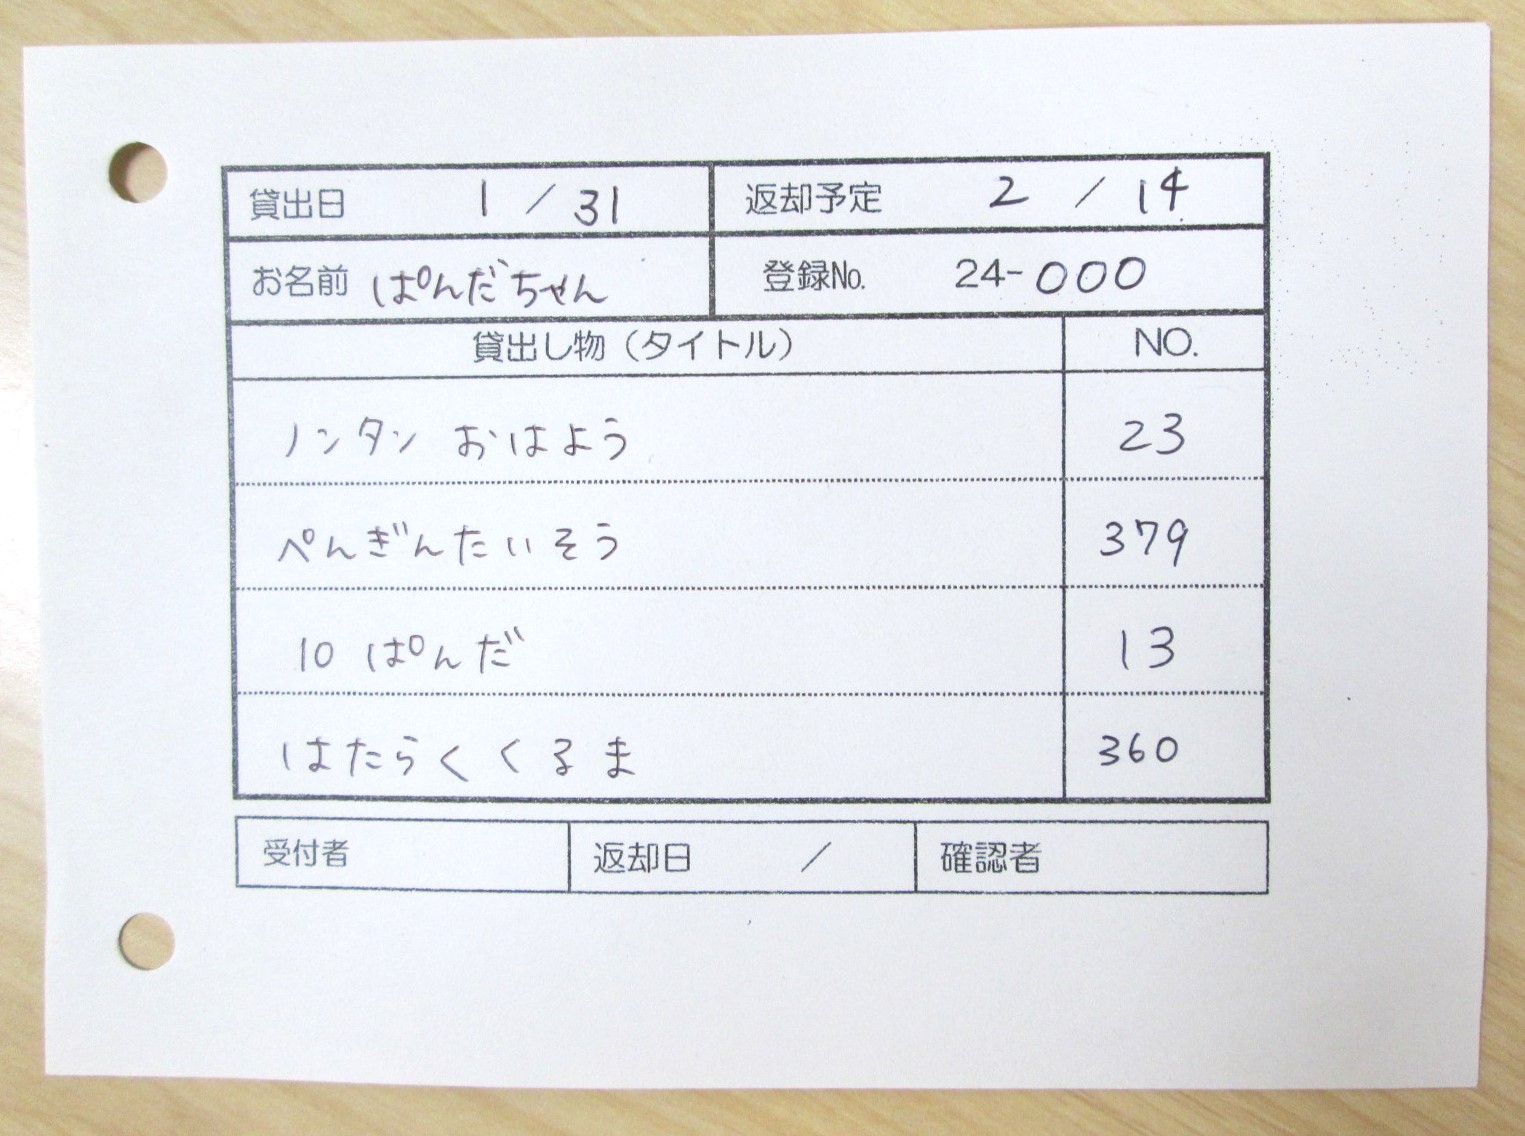 貸出日 1 / 31 返却予定 2 / 14
お名前 ぱんだちゃん 登録No. 24-000
貸出し物（タイトル） NO.
ノンタン おはよう 23
ぺんぎんたいそう 379
10 ぱんだ 13
はたらくくるま 360
受付者 返却日 / 確認者